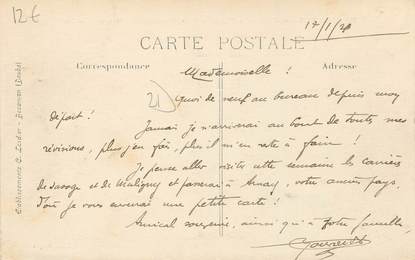 12€
17/1/20
CARTE POSTALE
Correspondance
Adresse
Mademoiselle !
21
Quoi de neuf au bureau depuis mon
départ !
Jamais je n'arriverai au bout de toutes mes
révisions, plus j'en fais, plus il m'en reste à faire !
Je pense aller visiter cette semaine les carrières
de et de et passerai à Arnay, votre ancien pays,
d'où je vous enverrai une petite carte !
Amical souvenir, ainsi qu'à votre famille,
Etablissements C. Lardier - Besançon (Doubs)